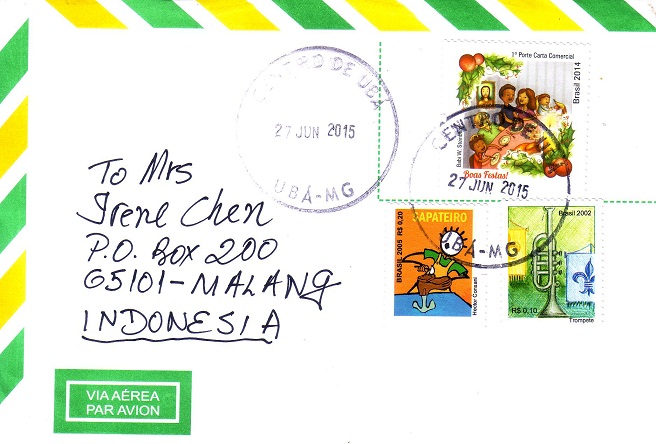 CENTRO DE UBÁ
27 JUN 2015
UBÁ-MG
1º Porte Carta Comercial
Brasil 2014
Boas Festas!
CENTRO DE
27 JUN 2015
UBÁ-MG
To Mrs
Irene Chen
P.O. BOX 200
65101-MALANG
INDONESIA
SAPATEIRO
BRASIL 2005 R$ 0,20
Brasil 2002
R$ 0,10
Trompete
VIA AÉREA
PAR AVION